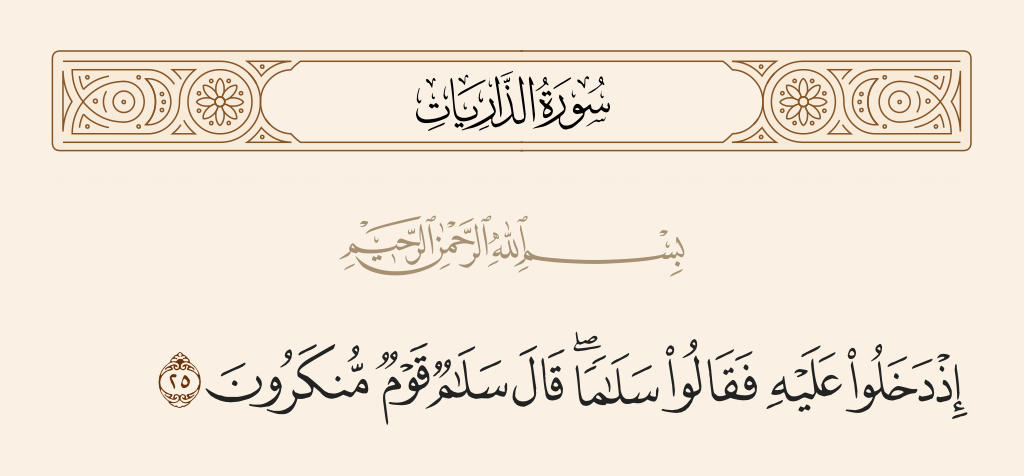 سُورَةُ الذَّارِيَاتِ
بِسْمِ ٱللَّهِ ٱلرَّحْمَٰنِ ٱلرَّحِيمِ
إِذْ دَخَلُوا۟ عَلَيْهِ فَقَالُوا۟ سَلَٰمًا ۖ قَالَ سَلَٰمٌ قَوْمٌ مُّنكَرُونَ ٢٥